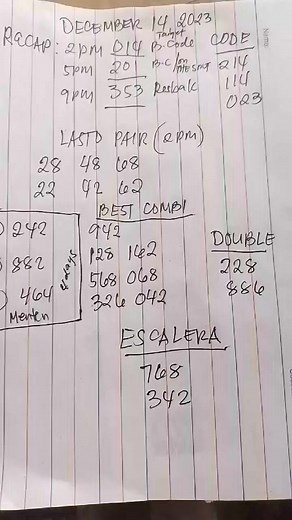 DECEMBER 14, 2023
RECAP: 2pm 014 Target B.Code CODE
5pm 201 B.C/on 214
9pm 353 Resbak 114
023
LAST D PAIR (2pm)
28 48 68
22 42 62
BEST COMBI
242 942
882 128 162
464 568 068
326 042
DOUBLE
228
886
ESCALERA
768
342